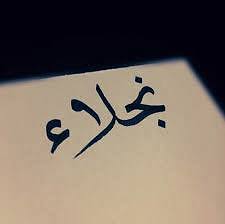 نجلاء